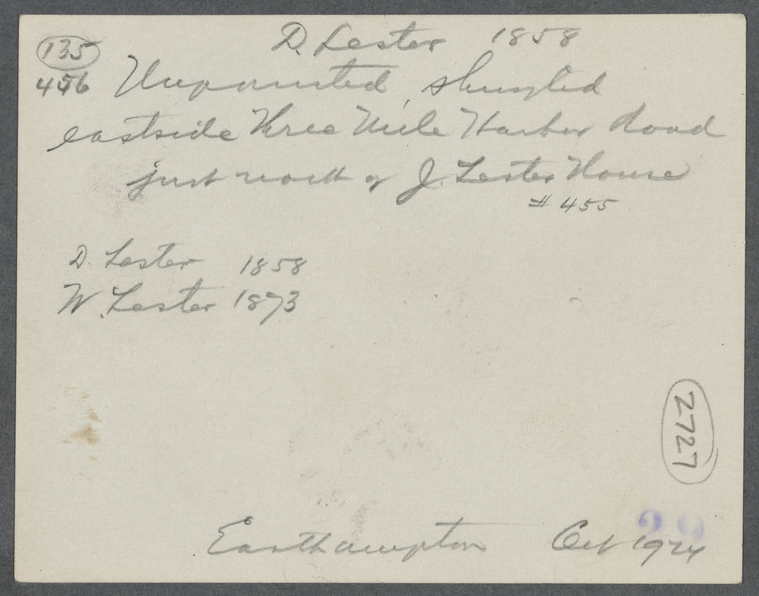 D. Lester 1858
135
456 Unpainted, shingled
eastside Three Mile Harbor Road
just north of J. Lester House
# 455
D. Lester 1858
W. Lester 1873
2727
29
Easthampton Oct 1924